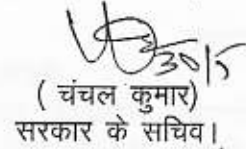 30/5
( चंचल कुमार)
सरकार के सचिव।